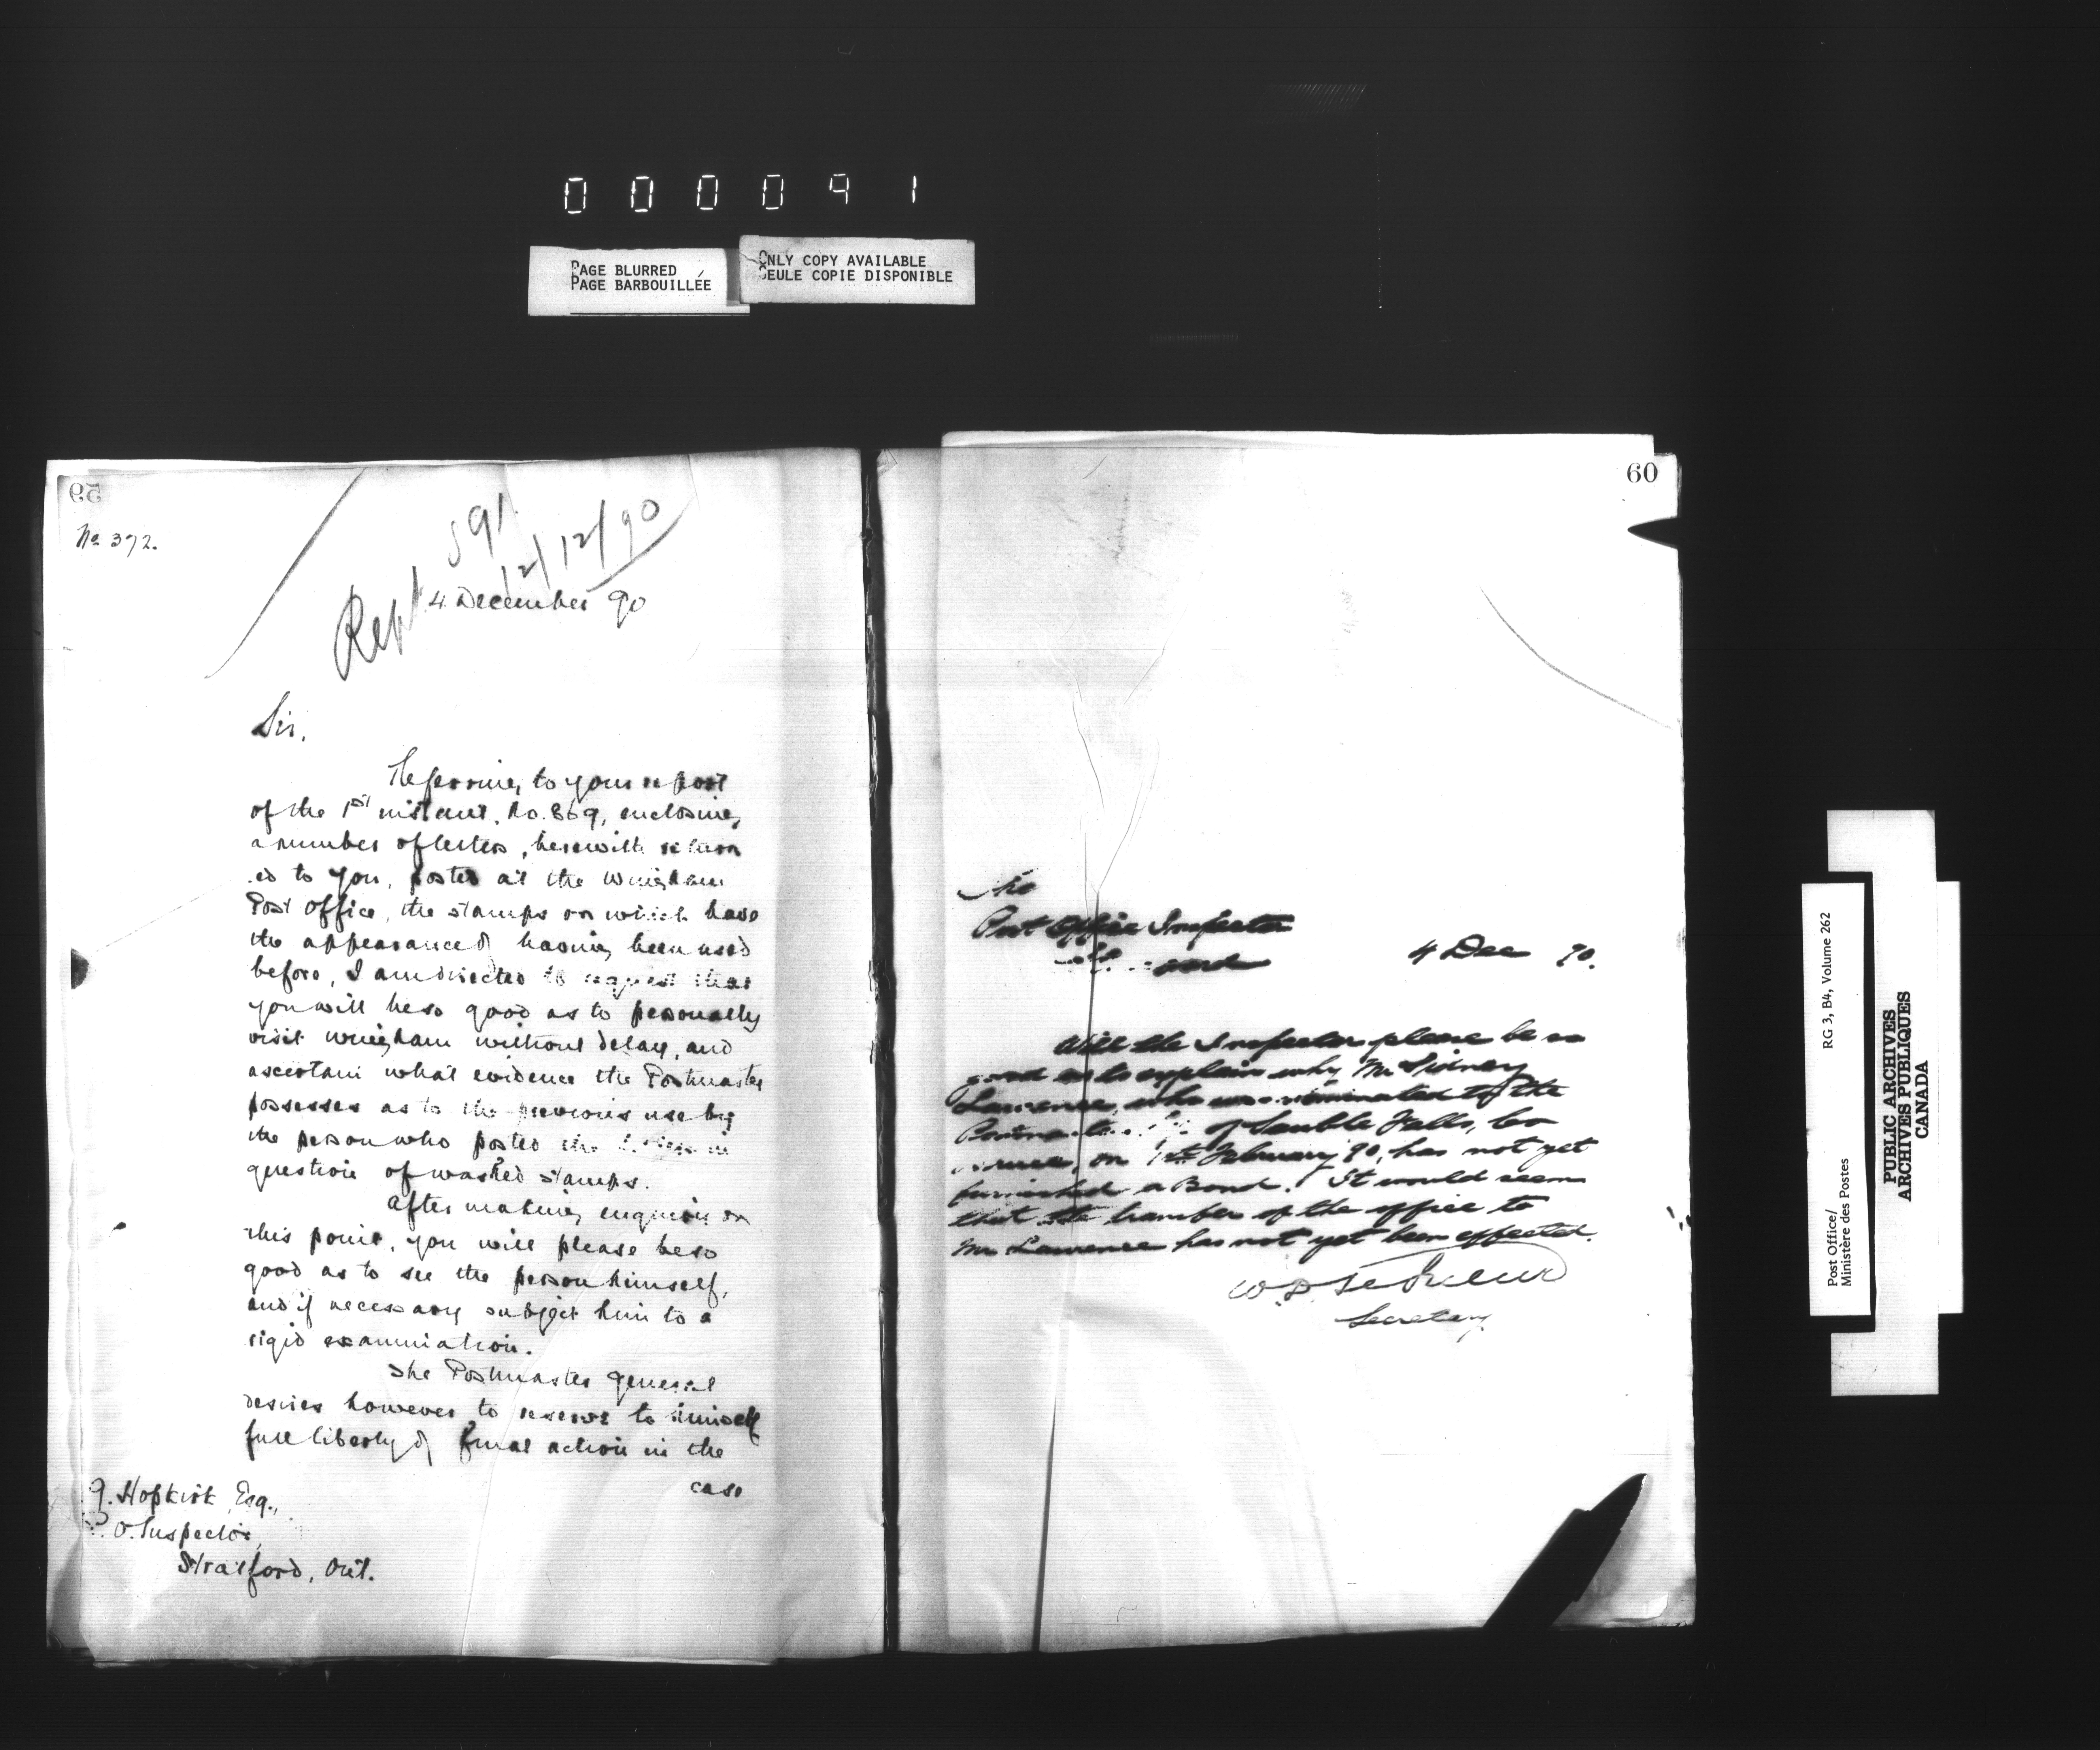 000091
PAGE BLURRED
PAGE BARBOUILLÉE
ONLY COPY AVAILABLE
SEULE COPIE DISPONIBLE
59
No 372.
Rept 591
12/12/90
4 December 90
Sir,
Referring to your report
of the 1st instant, No. 869, enclosing
a number of letters, herewith return
ed to you, posted at the Wingham
Post Office, the stamps on which have
the appearance of having been used
before, I am directed to request that
you will be so good as to personally
visit Wingham without delay, and
ascertain what evidence the Postmaster
possesses as to the previous use by
the person who posted the letters in
question of washed stamps.
After making enquiry on
this point, you will please be so
good as to see the person himself,
and if necessary subject him to a
rigid examination.
The Postmaster General
desires however to reserve to himself
full liberty of final action in the
case
G. Hopkirk Esq.,
P.O. Inspector,
Stratford, Ont.
60
The
Post Office Inspector
4 Dec 90.
Will the Inspector please be so
good as to explain why Mr Sidney
Lawrence, who was nominated to the
of Sauble Falls, Co
Bruce, on 1st February 90, has not yet
furnished a Bond. It would seem
that the transfer of the office to
Mr Lawrence has not yet been effected.
W.D. LeSueur
Secretary
Post Office/
Ministère des Postes
RG 3, B4, Volume 262
PUBLIC ARCHIVES
ARCHIVES PUBLIQUES
CANADA